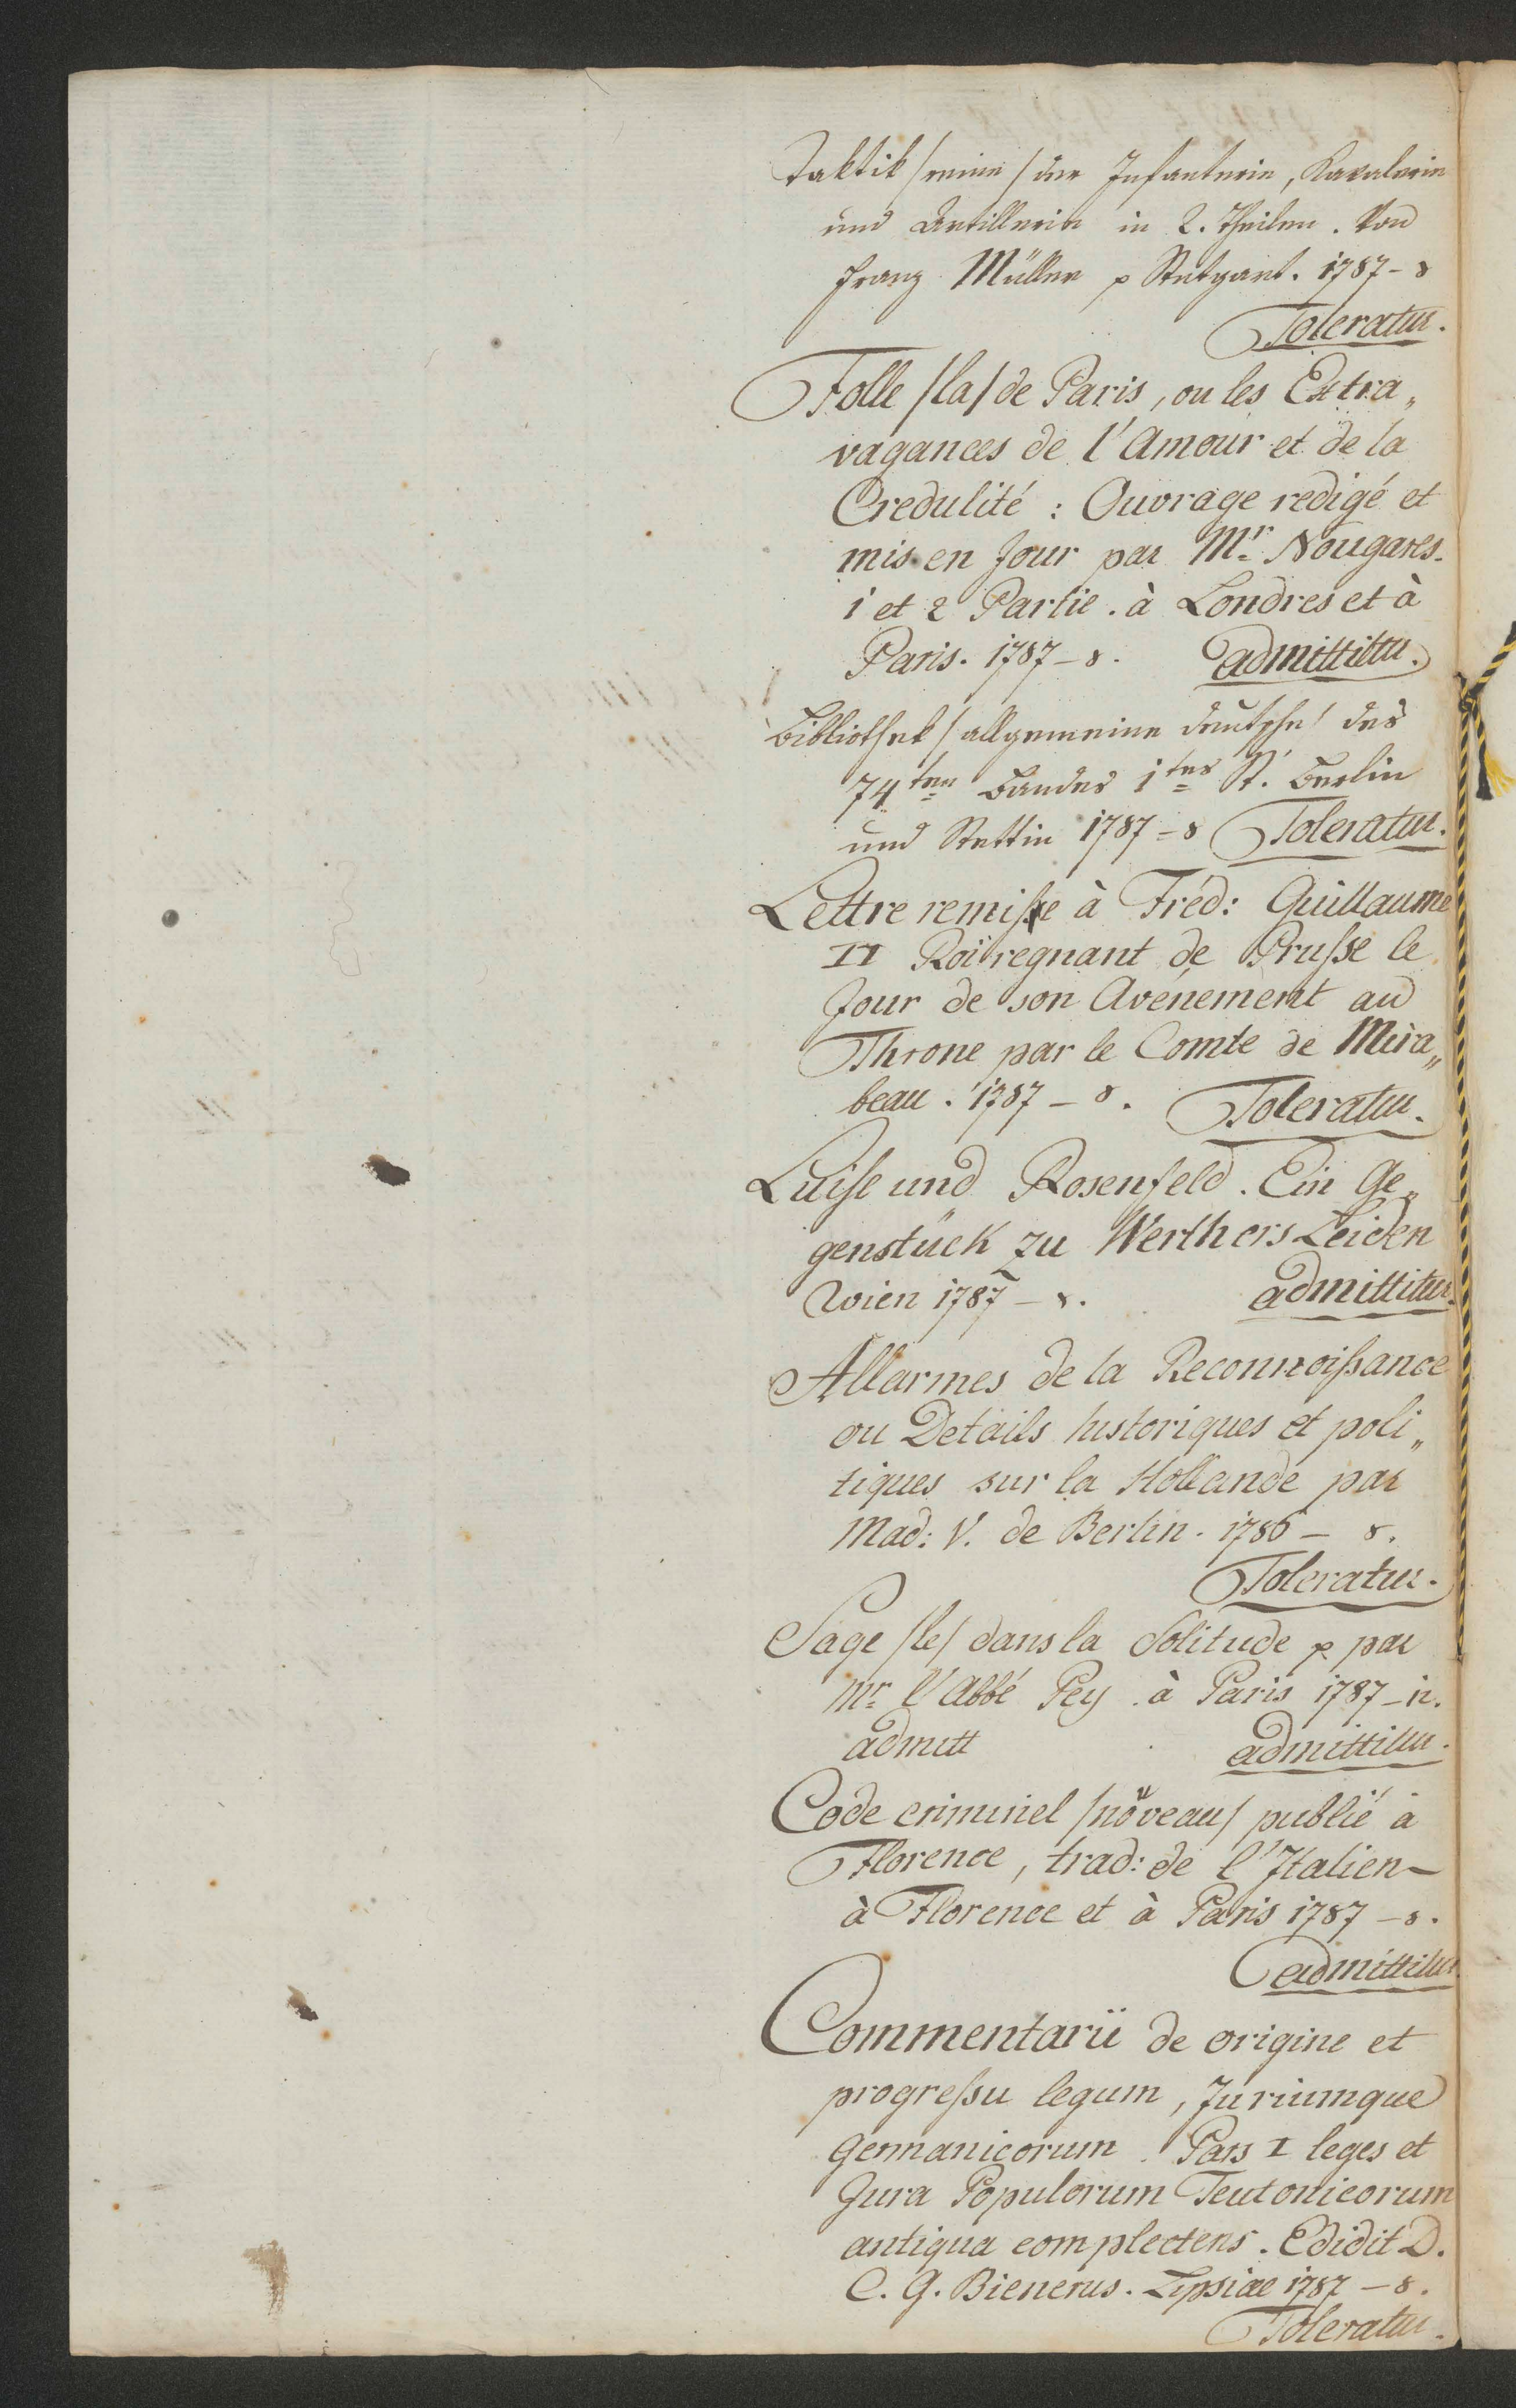 Taktik /reine/ der Infanterie, Kavalerie
und Artillerie in 2. Theilen. Von
Franz Müller p Stutgart. 1787-8
Toleratur.
Folle /la/ de Paris, ou les Extra„
vagances de l'Amour et de la
Credulité : Ouvrage redigé et
mis en Jour par Mr. Nougares.
1 et 2 Partie. à Londres et à
Paris. 1787-8. admittitur.
Bibliothek /allgemeine deutsche/ des
74ten Bandes 1tes St. Berlin
und Stettin 1787-8 Toleratur.
Lettre remisse à Fréd: Guillaume
II Roi regnant de Prusse le
Jour de son Avenement au
Throne par le Comte de Mira„
beau. 1787-8. Toleratur.
Luise und Rosenfeld. Ein Ge„
genstück zu Werthers Leiden
Wien 1787-8. admittitur.
Allarmes de la Reconnoissance
ou Details historiques et poli„
tiques sur la Hollande par
Mad: V. de Berlin. 1786-8.
Toleratur.
Sage /le/ dans la Solitude p par
Mr. l'Abbé Pey. à Paris 1787-12.
admitt admittitur.
Code criminel /nouveau/ publié à
Florence, trad: de l'Italien-
à Florence et à Paris 1787-8.
admittitur
Commentarii de origine et
progressu legum, Juriumque
Germanicorum. Pars I leges et
Jura Populorum Teutonicorum
antiqua complectens. Edidit D.
C. G. Bienerus. Lipsiae 1787-8.
Toleratur.